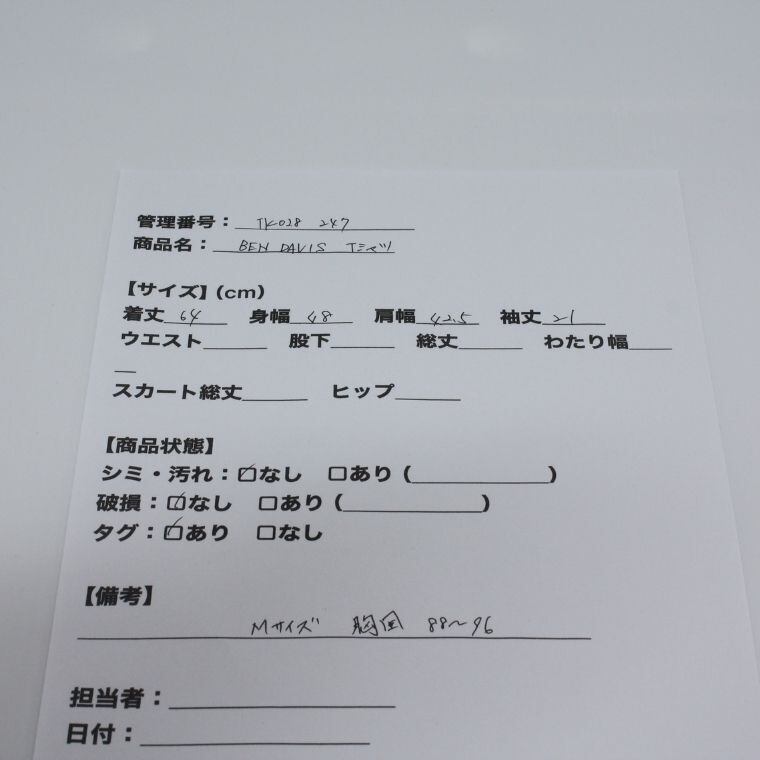 管理番号：TK028 247
商品名：BEN DAVIS Tシャツ
【サイズ】(cm)
着丈 64 身幅 48 肩幅 42.5 袖丈 21
ウエスト______ 股下______ 総丈______ わたり幅____
__
スカート総丈______ ヒップ______
【商品状態】
シミ・汚れ：☑なし □あり（____________）
破損：☑なし □あり（____________）
タグ：☑あり □なし
【備考】
Mサイズ 胸囲 88〜96
担当者：____________________
日付：____________________